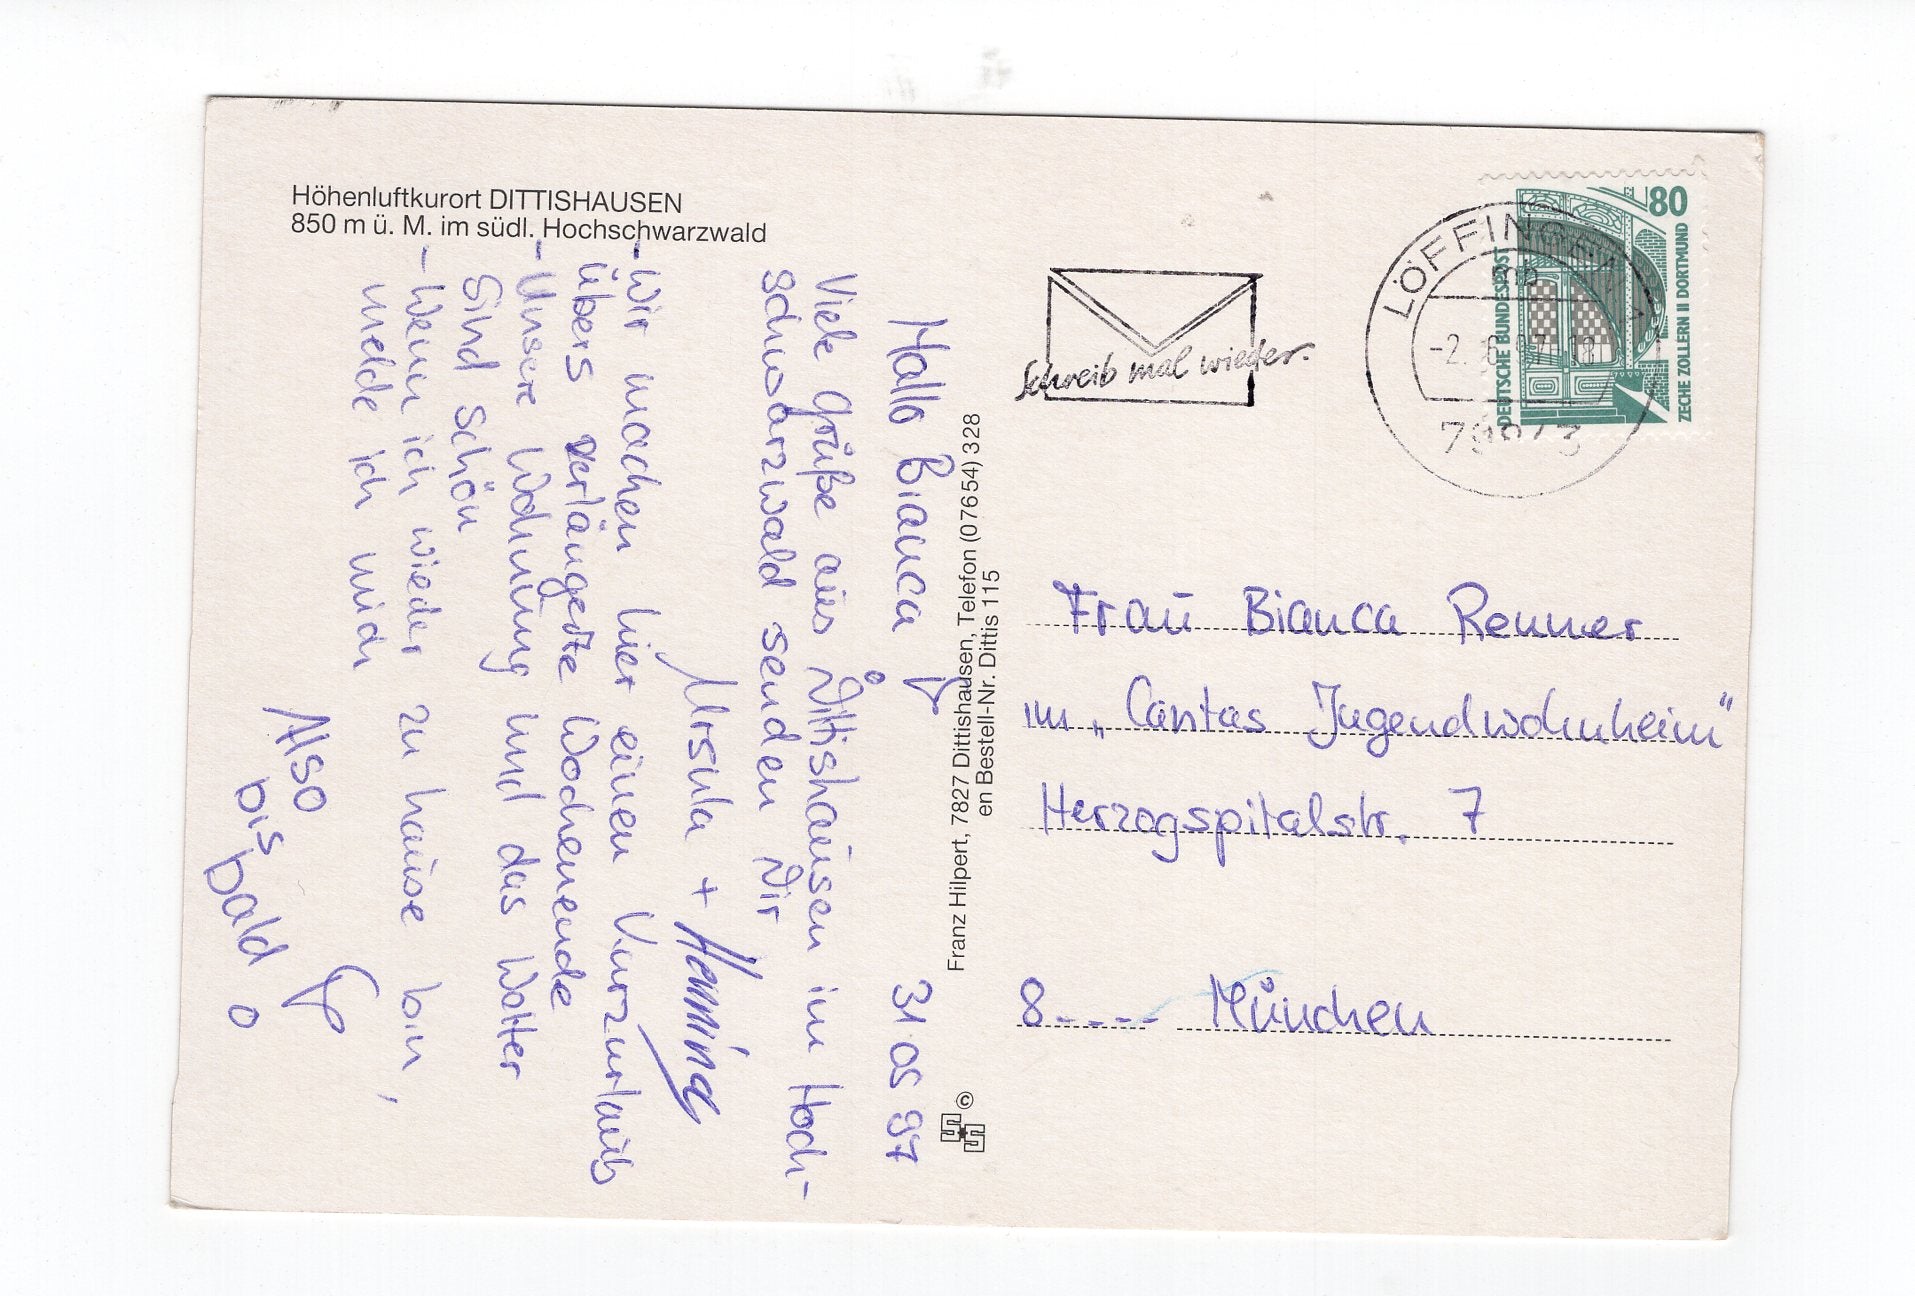 Höhenluftkurort DITTISHAUSEN
850 m ü. M. im südl. Hochschwarzwald
Hallo Bianca ! 31 05 97
Viele Grüße aus Dittishausen im Hoch-
schwarzwald senden Dir
Ursula + Henning
- Wir machen hier einen Kurzurlaub
übers verlängerte Wochenende
- Unsere Wohnung und das Wetter
sind schön
- Wenn ich wieder zu hause bin,
melde ich mich
Also
bis
bald !
Franz Hilpert, 7827 Dittishausen, Telefon (07654) 328
en Bestell-Nr. Dittis 115
©
Schreib mal wieder.
LÖFFINGEN 1
mb
-2. 6. 97 - 18
79843
80
DEUTSCHE BUNDESPOST
ZECHE ZOLLERN II DORTMUND
Frau Bianca Renner
im „Caritas Jugendwohnheim"
Herzogspitalstr. 7
8---- München